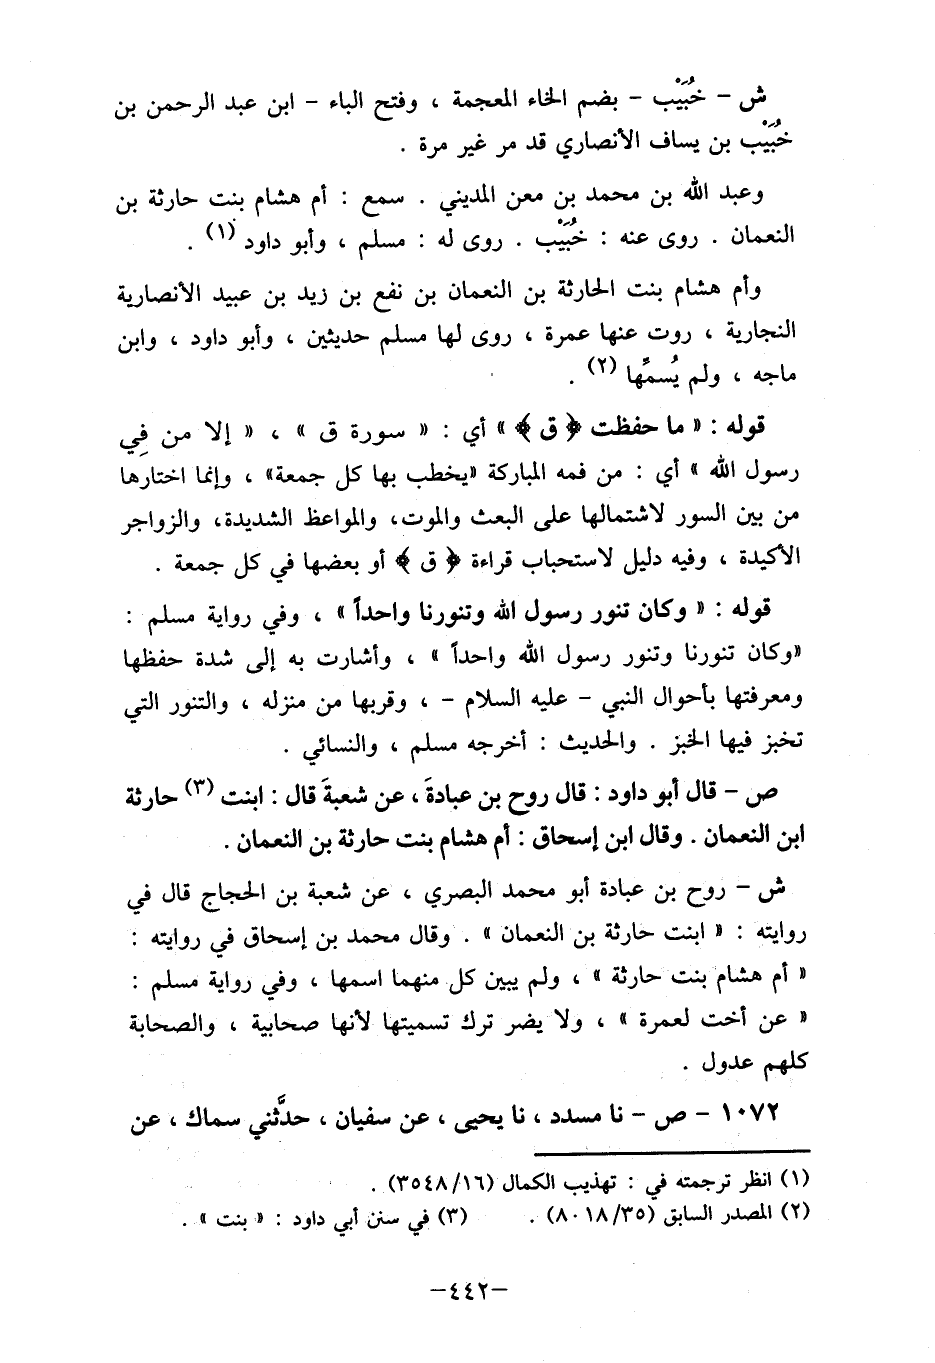 ش – خُبَيْب – بضم الخاء المعجمة ، وفتح الباء – ابن عبد الرحمن بن
خُبَيْب بن يساف الأنصاري قد مر غير مرة .
وعبد الله بن محمد بن معن المديني . سمع : أم هشام بنت حارثة بن
النعمان . روى عنه : خُبَيْب . روى له : مسلم ، وأبو داود (١) .
وأم هشام بنت الحارثة بن النعمان بن نفع بن زيد بن عبيد الأنصارية
النجارية ، روت عنها عمرة ، روى لها مسلم حديثين ، وأبو داود ، وابن
ماجه ، ولم يُسمِّها (٢) .
قوله : « ما حفظت ﴿ ق ﴾ » أي : « سورة ق » ، « إلا من فِي
رسول الله » أي : من فمه المباركة «يخطب بها كل جمعة» ، وإنما اختارها
من بين السور لاشتمالها على البعث والموت، والمواعظ الشديدة، والزواجر
الأكيدة ، وفيه دليل لاستحباب قراءة ﴿ ق ﴾ أو بعضها في كل جمعة .
قوله : « وكان تنور رسول الله وتنورنا واحداً » ، وفي رواية مسلم :
«وكان تنورنا وتنور رسول الله واحداً » ، وأشارت به إلى شدة حفظها
ومعرفتها بأحوال النبي – عليه السلام – ، وقربها من منزله ، والتنور التي
تخبز فيها الخبز . والحديث : أخرجه مسلم ، والنسائي .
ص – قال أبو داود : قال روح بن عبادةَ ، عن شعبةَ قال : ابنت (٣) حارثة
ابن النعمان . وقال ابن إسحاق : أم هشام بنت حارثة بن النعمان .
ش – روح بن عبادة أبو محمد البصري ، عن شعبة بن الحجاج قال في
روايته : « ابنت حارثة بن النعمان » . وقال محمد بن إسحاق في روايته :
« أم هشام بنت حارثة » ، ولم يبين كل منهما اسمها ، وفي رواية مسلم :
« عن أخت لعمرة » ، ولا يضر ترك تسميتها لأنها صحابية ، والصحابة
كلهم عدول .
١٠٧٢ – ص – نا مسدد ، نا يحيى ، عن سفيان ، حدَّثني سماك ، عن
(١) انظر ترجمته في : تهذيب الكمال (٣٥٤٨/١٦) .
(٢) المصدر السابق (٨٠١٨/٣٥) . (٣) في سنن أبي داود : « بنت » .
–٤٤٢–